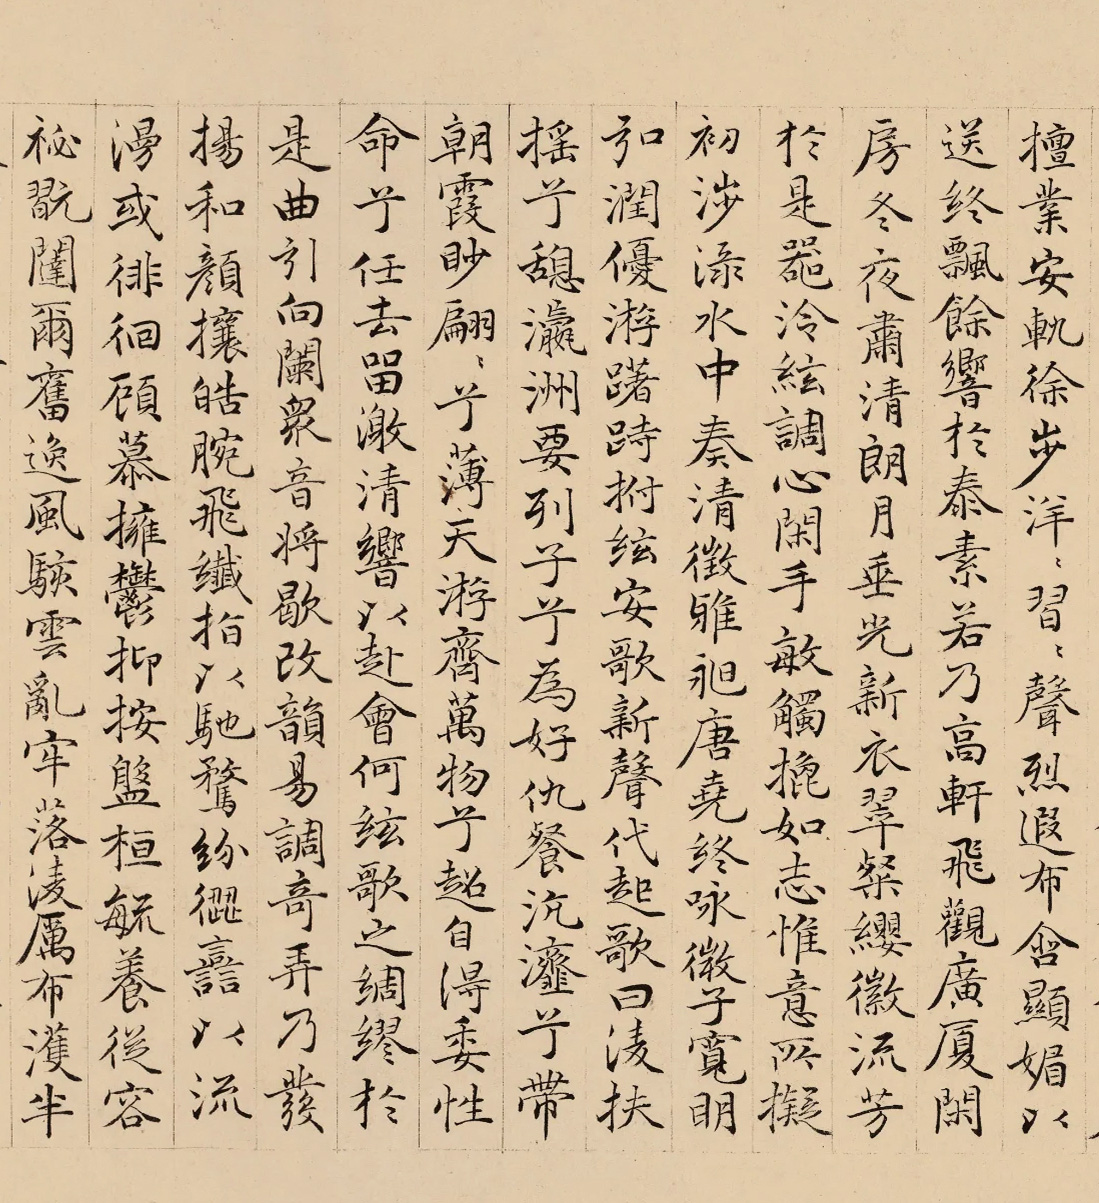 擅業安軌徐步洋〻習〻聲烈遐布含顯媚以
送終飄餘響於泰素若乃高軒飛觀廣厦閑
房冬夜肅清朗月垂光新衣翠粲纓徽流芳
於是器泠絃調心閑手敏觸㩻如志惟意所擬
初涉淥水中奏清徵雅昶唐堯終咏微子寬明
弘潤優游躇跱拊絃安歌新聲代起歌曰淩扶
搖兮憩瀛洲要列子兮為好仇餐沆瀣兮帶
朝霞眇翩〻兮薄天游齊萬物兮超自得委性
命兮任去留激清響以赴會何絃歌之綢繆於
是曲引向闌衆音將歇改韻易調奇弄乃發
揚和顔攘皓腕飛纖指以馳騖紛㒊譶以流
漫或徘徊顧慕擁鬱抑按盤桓毓養從容
祕翫闥爾奮逸風駭雲亂牢落淩厲布濩半